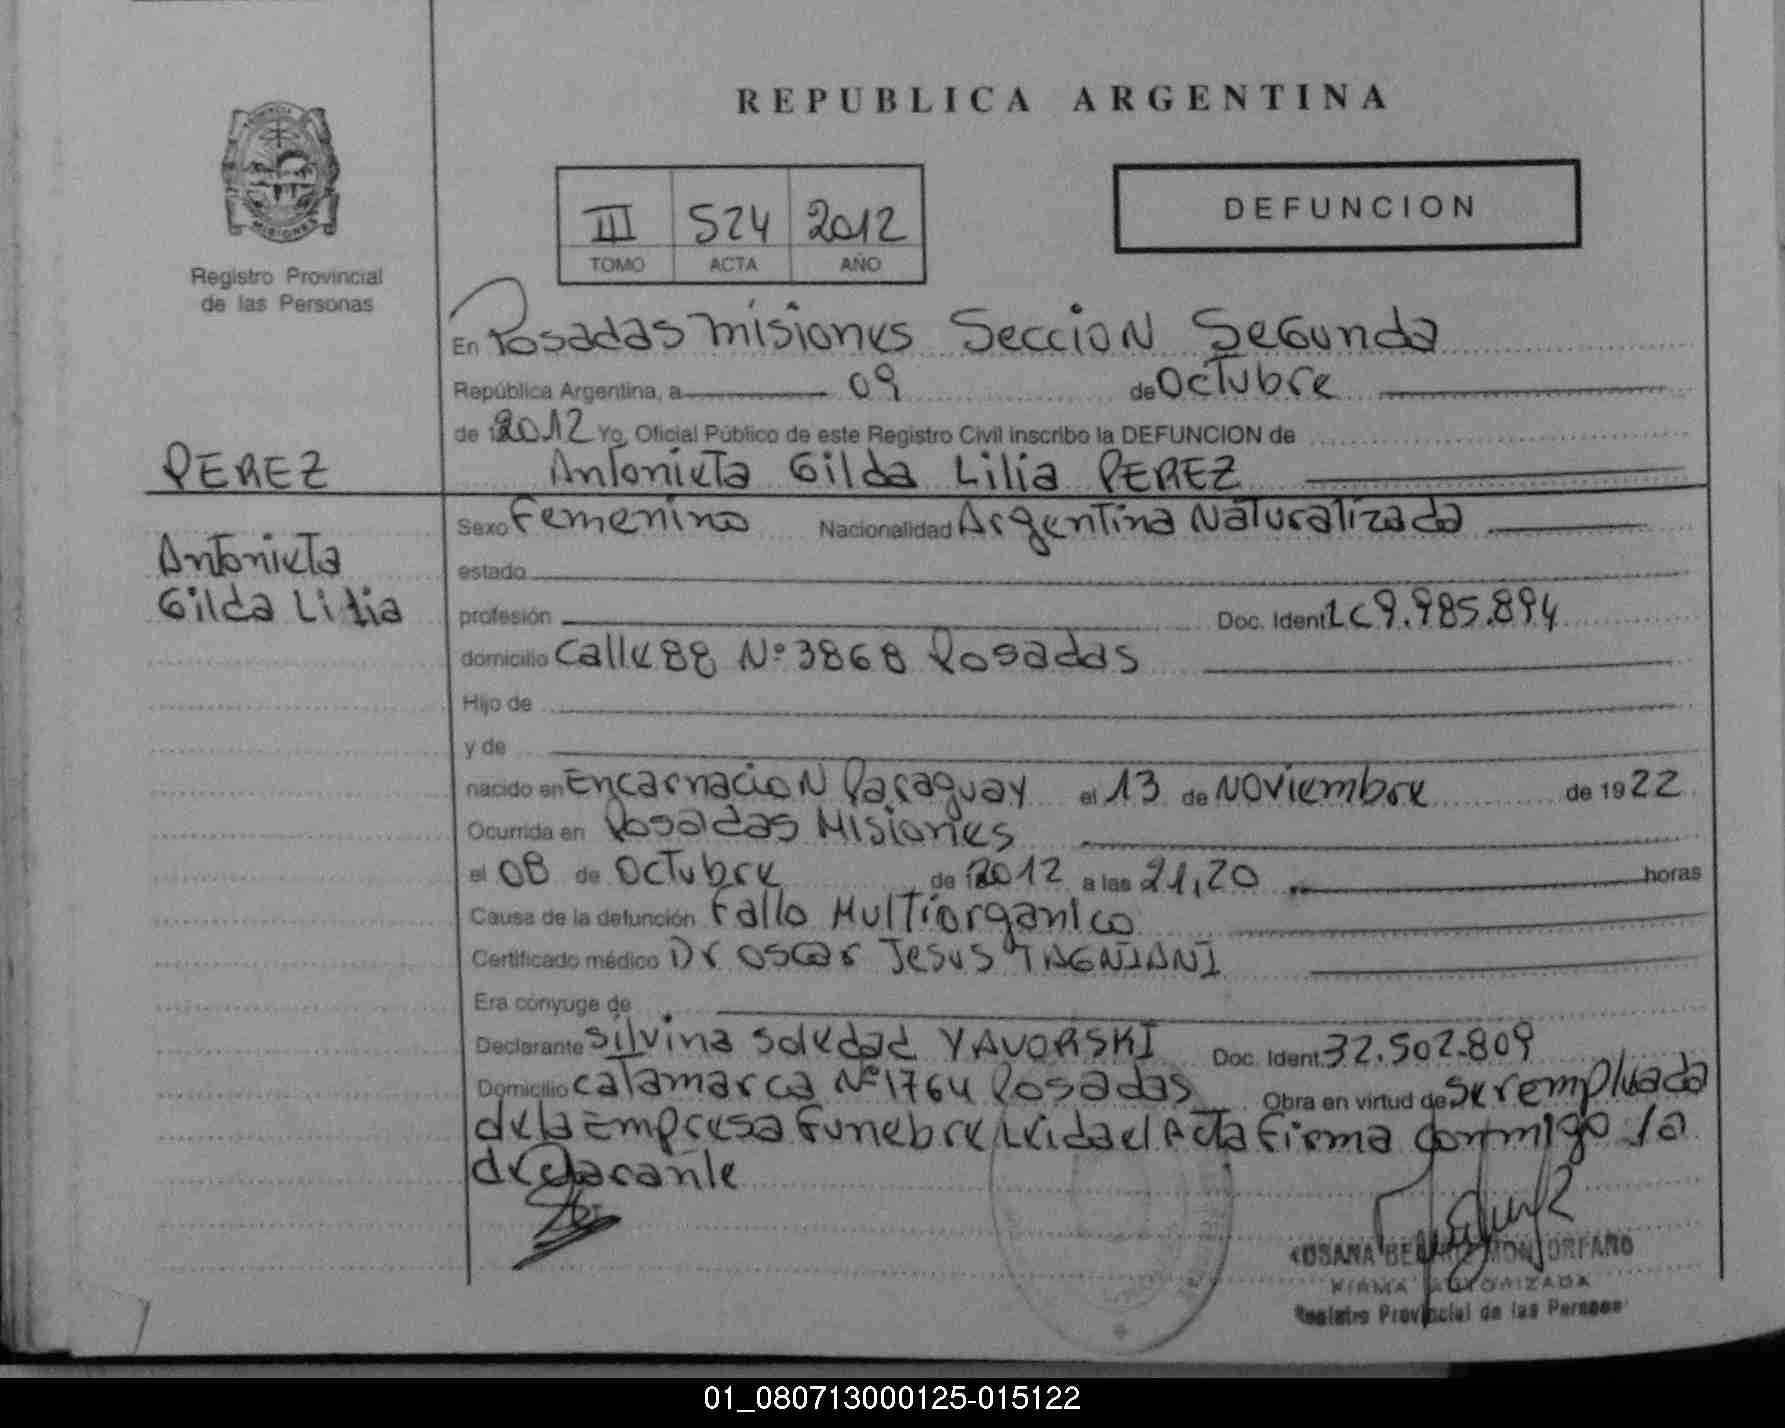 REPUBLICA ARGENTINA
III 524 2012
TOMO ACTA AÑO
DEFUNCION
MISIONES
Registro Provincial
de las Personas
En Posadas Misiones Seccion Segunda
República Argentina, a 09 de Octubre
de 2012 Yo, Oficial Público de este Registro Civil inscribo la DEFUNCION de
Antonieta Gilda Lilia PEREZ
PEREZ
Antonieta
Gilda Lilia
Sexo Femenino Nacionalidad Argentina Naturalizada
estado
profesión Doc. Ident LC 9.985.894
domicilio Calle 88 Nº 3868 Posadas
Hijo de
y de
nacido en Encarnacion Paraguay el 13 de Noviembre de 1922
Ocurrida en Posadas Misiones
el 08 de Octubre de 2012 a las 21,20 horas
Causa de la defunción Fallo Multiorganico
Certificado médico Dr Oscar Jesus TAGNIANI
Era cónyuge de
Declarante Silvina Soledad YAVORSKI Doc. Ident. 32.502.809
Domicilio Catamarca Nº 1764 Posadas Obra en virtud de Ser empleada
de la Empresa Funebre Leida el Acta Firma conmigo la
declarante
FIRMA AUTORIZADA
Registro Provincial de las Personas
01_080713000125-015122